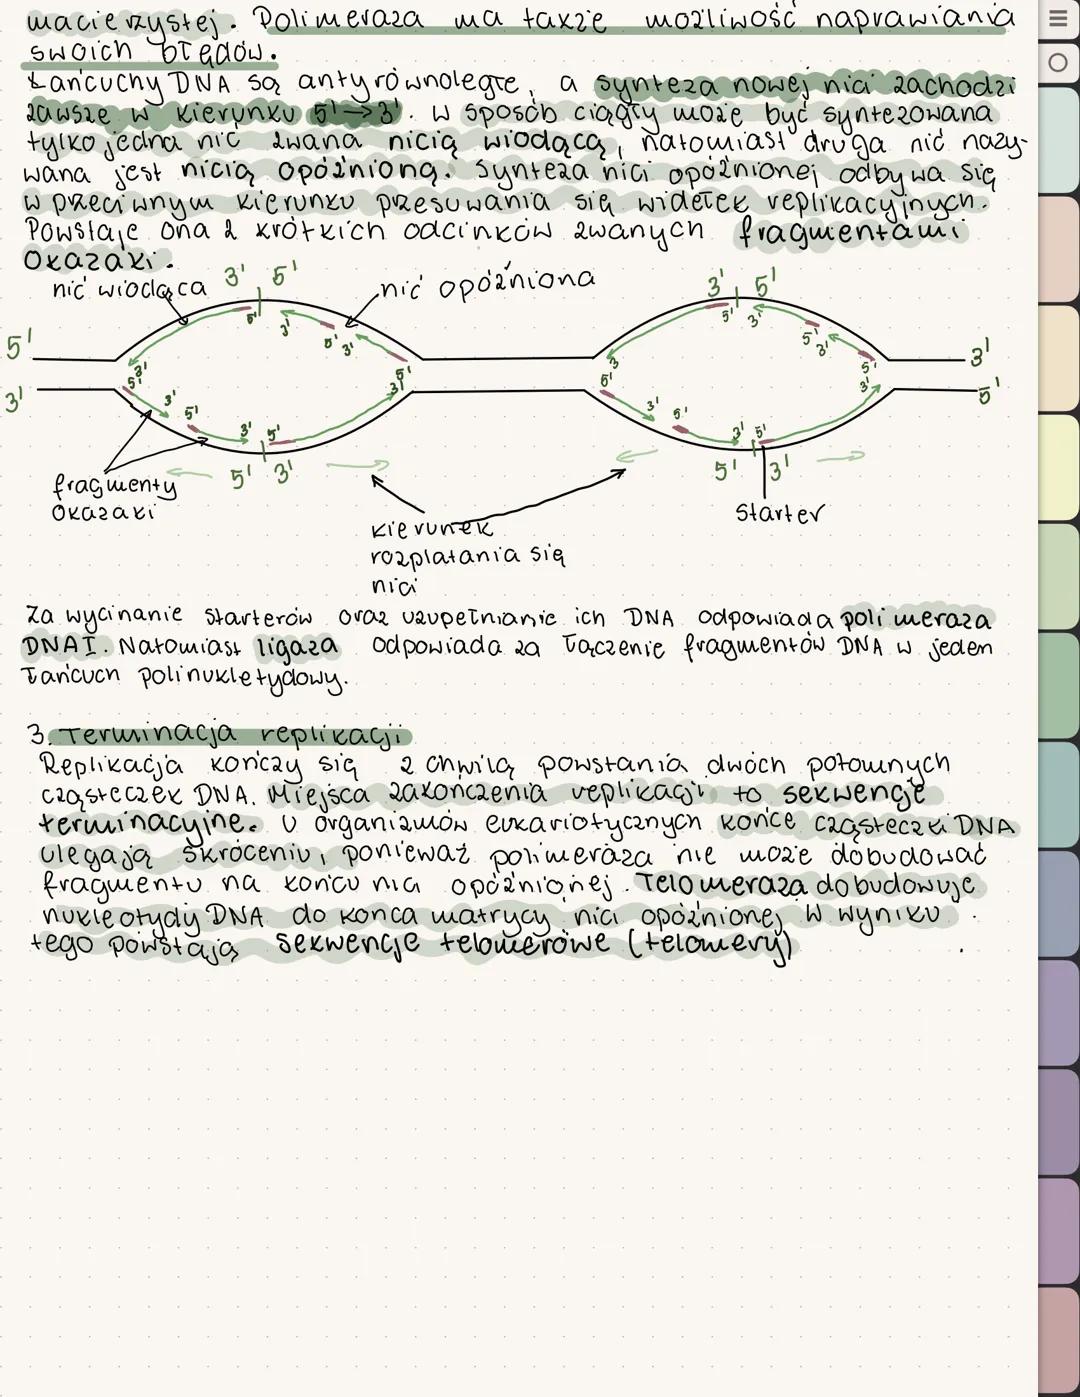 macierzystej. Polimeraza ma także możliwość naprawiania
swoich błędów.
Łańcuchy DNA są antyrównoległe, a synteza nowej nici zachodzi
zawsze w kierunku 5'→3'. W sposób ciągły może być syntezowana
tylko jedna nić zwana nicią wiodącą, natomiast druga nić nazy-
wana jest nicią opóźnioną. Synteza nici opóźnionej odbywa się
w przeciwnym kierunku przesuwania się widełek replikacyjnych.
Powstaje ona z krótkich odcinków zwanych fragmentami
Okazaki.
nić wiodąca 3' 5' nić opóźniona 3' 5'
5' 3' 5' 3' 5' 3' 5' 3'
5' 3' 5' 3' 3' 5' 3'
3' 5' 3' 5' 3' 5' 5' 3' 5'
3' 5' 3' 5' 3' 5' 3' 5'
5' 3' 5' 3'
fragmenty
Okazaki
Starter
kierunek
rozplatania się
nici
Za wycinanie starterów oraz uzupełnianie ich DNA odpowiada polimeraza
DNAI. Natomiast ligaza odpowiada za łączenie fragmentów DNA w jeden
łańcuch polinukletydowy.
3. Terminacja replikacji
Replikacja kończy się z chwilą powstania dwóch potomnych
cząsteczek DNA. Miejsca zakończenia replikacji to sekwencje
terminacyjne. U organizmów eukariotycznych końce cząsteczki DNA
ulegają skróceniu, ponieważ polimeraza nie może dobudować
fragmentu na końcu nici opóźnionej. Telomeraza dobudowuje
nukleotydy DNA do końca matrycy nici opóźnionej W wyniku
tego powstają sekwencje telomerowe (telomery)